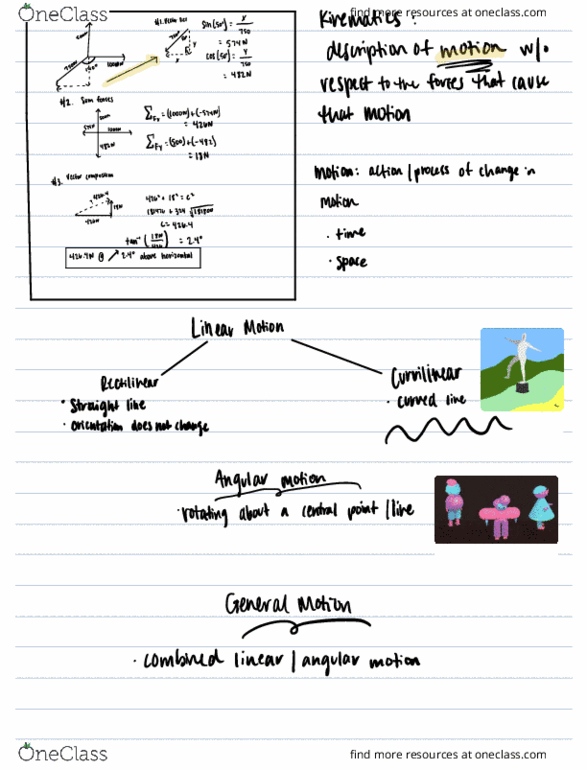 OneClass
find more resources at oneclass.com
sin(50°) = x/750
= 574N
cos(50°) = y/750
= 482N
#2. Sum forces
ΣFx = (1000N) + (-574N)
= 426N
ΣFy = (500) + (-482)
= 18N
#3. Vector composition
426² + 18² = c²
c = 426.4
= 2.4°
426.4N @ ↗ 2.4° above horizontal
Kinematics:
description of motion w/o
respect to the forces that cause
that motion
Motion: action/process of change in
motion
· time
· space
Linear Motion
Rectilinear
· Straight line
· orientation does not change
Curvilinear
· curved line
Angular motion
· rotating about a central point/line
General Motion
· combined linear/angular motion
OneClass
find more resources at oneclass.com